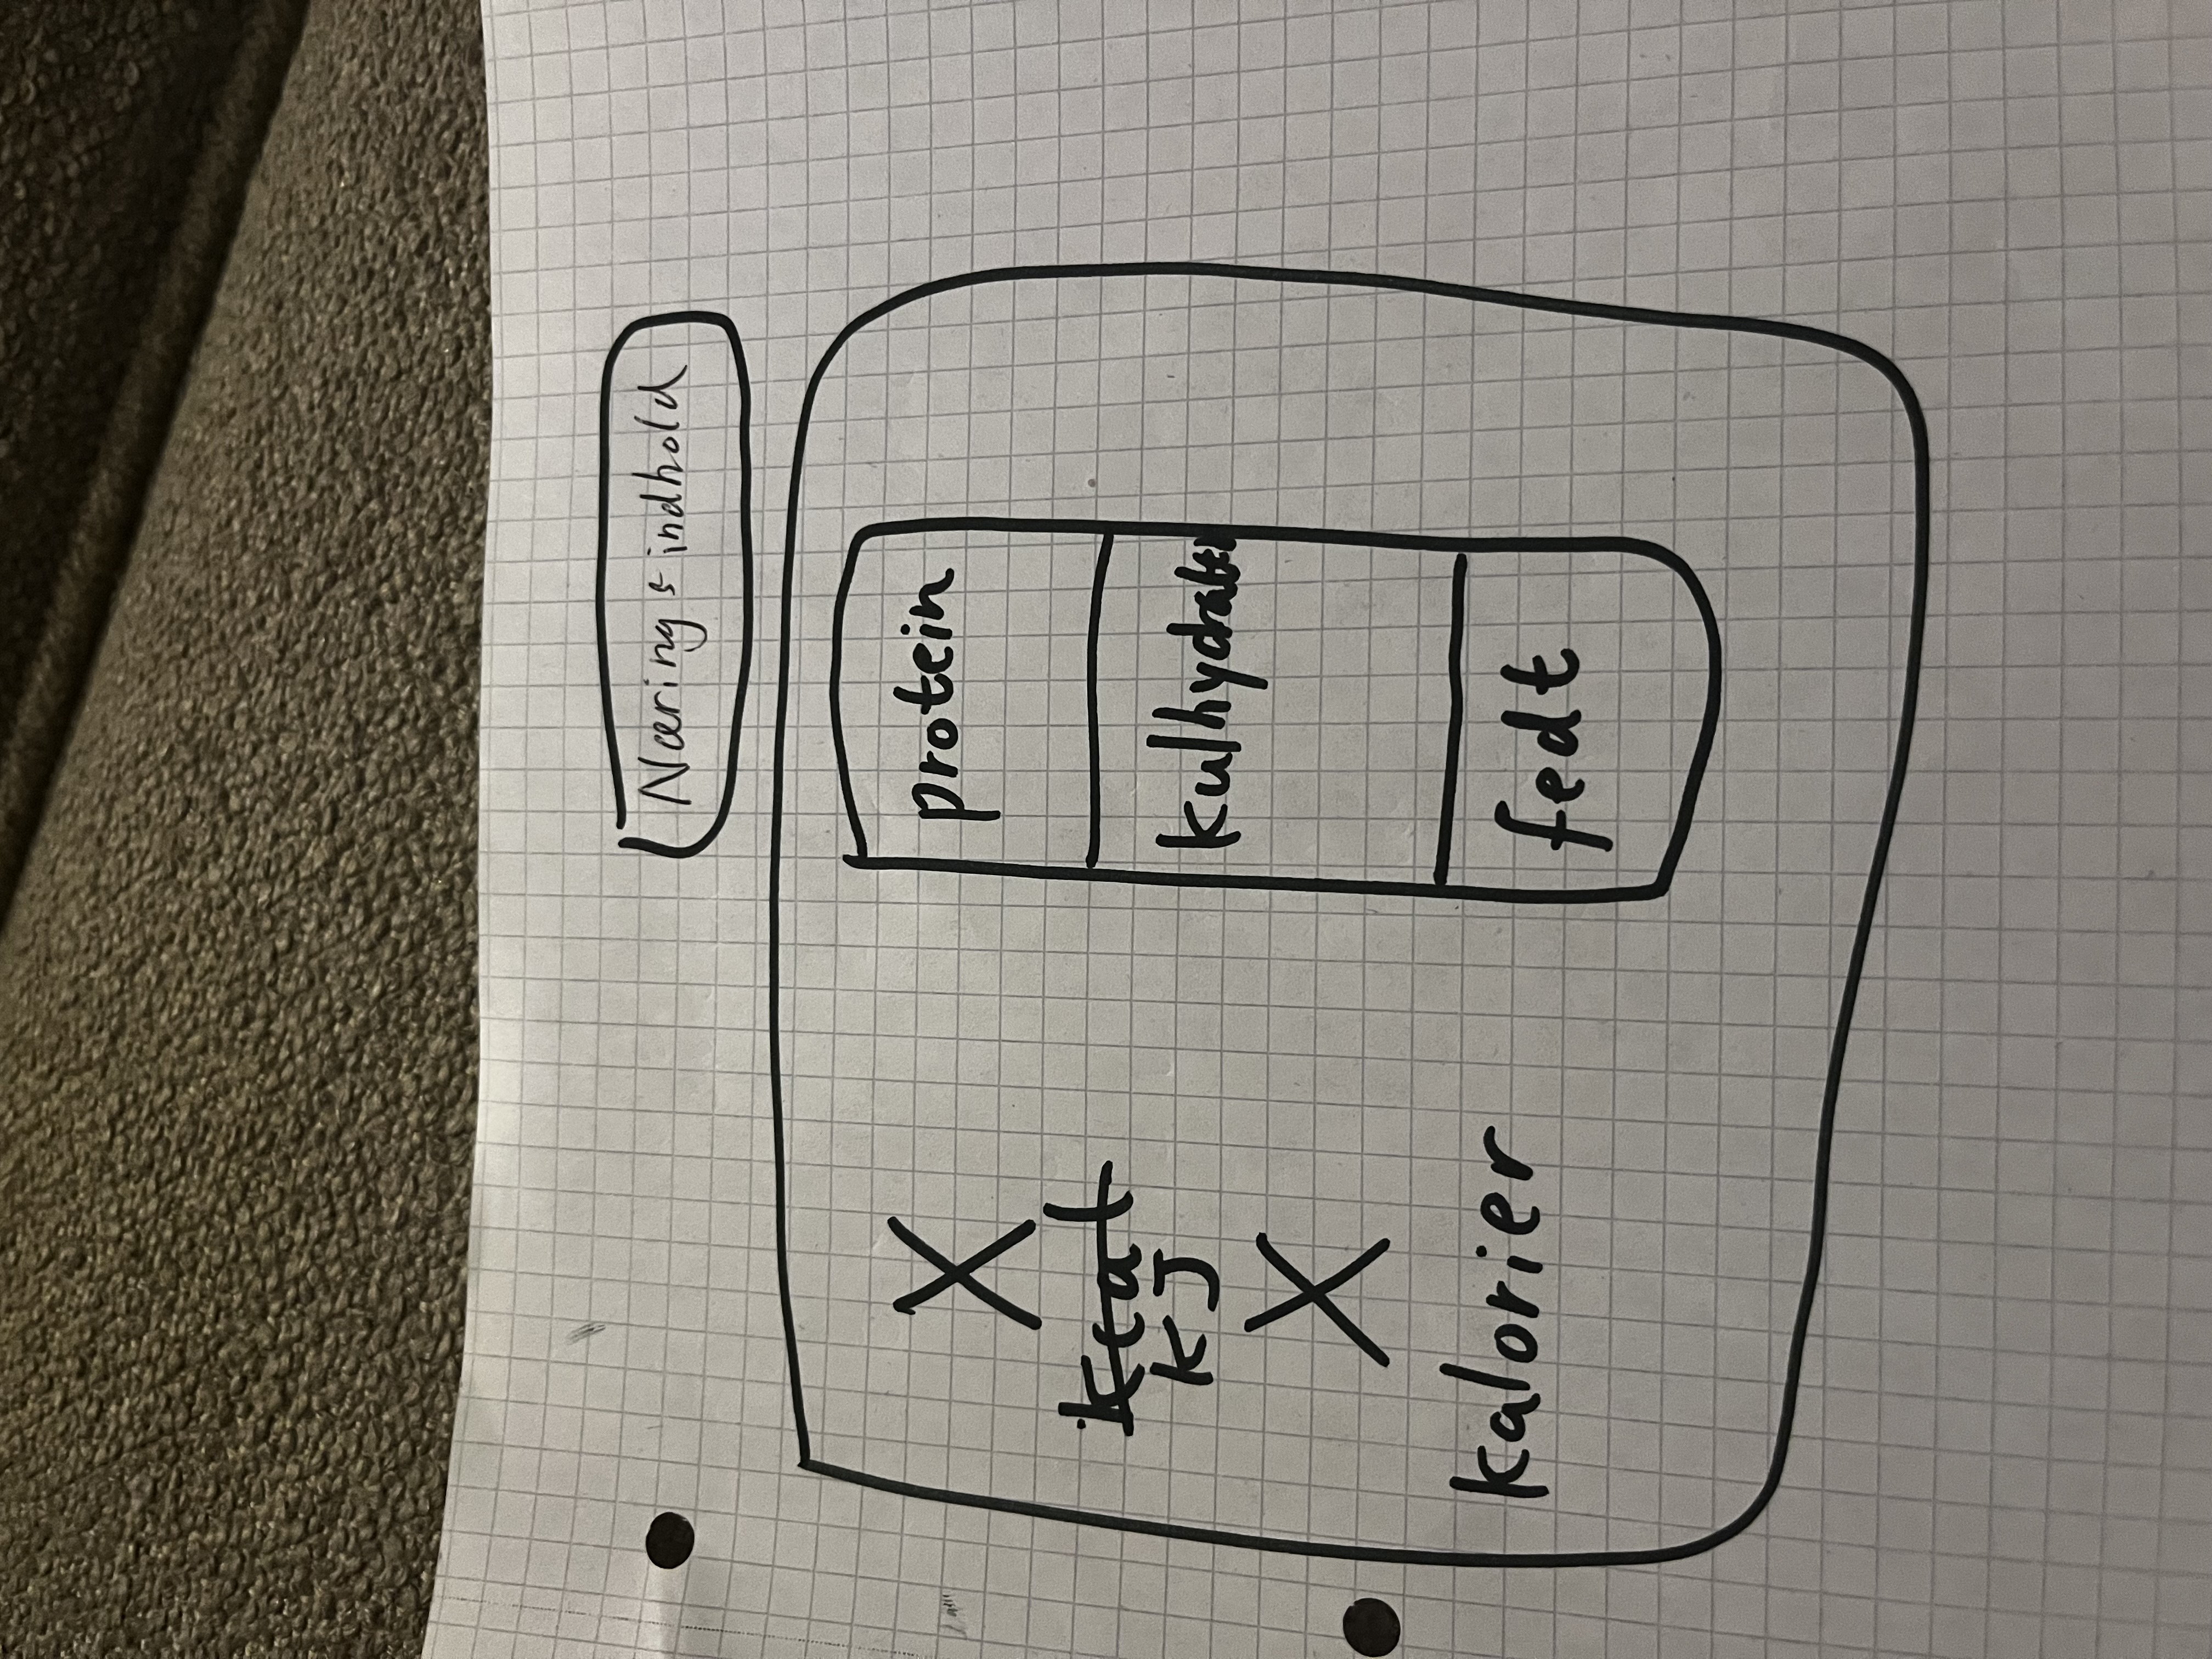 Nærings indhold
X
kcal
KJ
X
kalorier
protein
kulhydrater
fedt